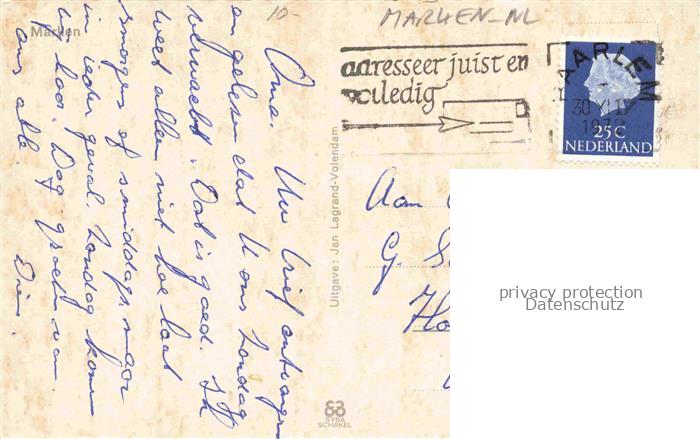 Marken
10-
MARKEN-NL
adresseer juist en
volledig
HAARLEM
30 XII
197
25C
NEDERLAND
Oma. Uw brief ontvangen
en gelezen dat U ons Zondag
verwacht. Dat is goed. Ik
weet alleen niet hoe laat
smorgens of smiddags, maar
in ieder geval. Zondag komen
we hoor. Dag groeten van
ons alle.
Dien.
Uitgave: Jan Lagrand-Volendam
SYBA
SCHAKEL
Aan
G. S
Ho
privacy protection
Datenschutz